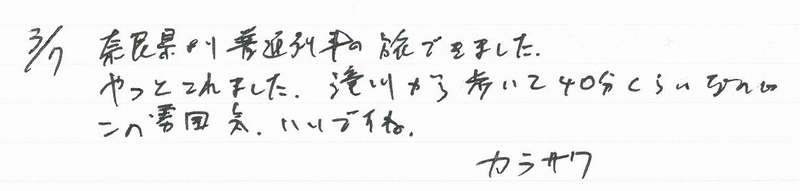 3/7 奈良県より普通列車の旅できました.
やっとこれました. 滝川から歩いて40分くらいなれど
この雰囲気. いいですね.
カラサワ